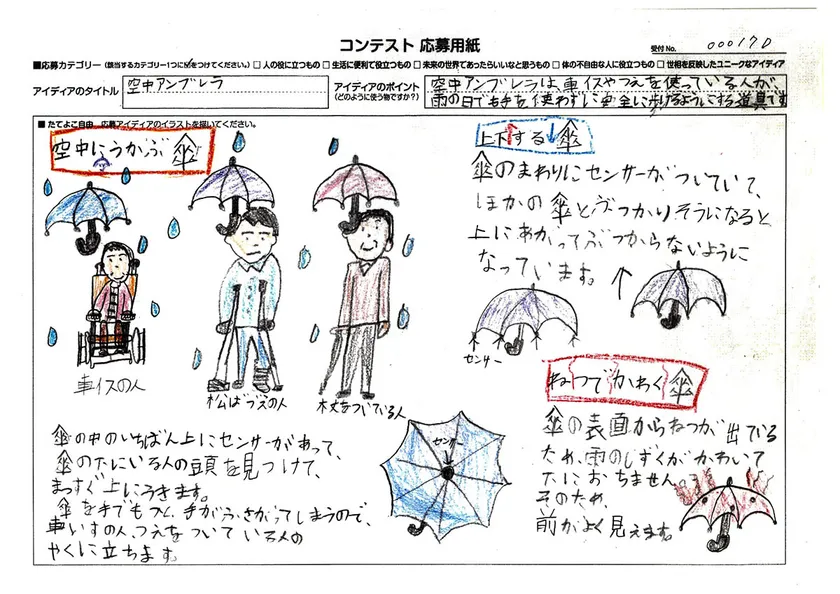 コンテスト 応募用紙
受付No. 00017D
■応募カテゴリー(該当するカテゴリー1つに☑をつけてください。) □ 人の役に立つもの □ 生活に便利で役立つもの □ 未来の世界であったらいいなと思うもの □ 体の不自由な人に役立つもの □ 世相を反映したユニークなアイディア
アイディアのタイトル
空中アンブレラ
アイディアのポイント
(どのように使う物ですか?)
空中アンブレラは、車イスやつえを使っている人が、
雨の日でも手を使わずに安全に歩けるようにする道具です
■ たてよこ自由 応募アイディアのイラストを描いてください。
空中にうかぶ 傘
車イスの人
松ばづえの人
杖をついている人
傘の中のいちばん上にセンサーがあって、
傘の下にいる人の頭を見つけて、
まっすぐ上にうきます。
傘を手でもつと、手がふさがってしまうので、
車いすの人、つえをついている人の
やくに立ちます。
センサー
上下する 傘
傘のまわりにセンサーがついていて、
ほかの傘とぶつかりそうになると
上にあがってぶつからないように
なっています。
センサー
ねつでかわく 傘
傘の表面からねつが出ている
ため、雨のしずくがかわいて
下におちません。
そのため、
前がよく見えます。